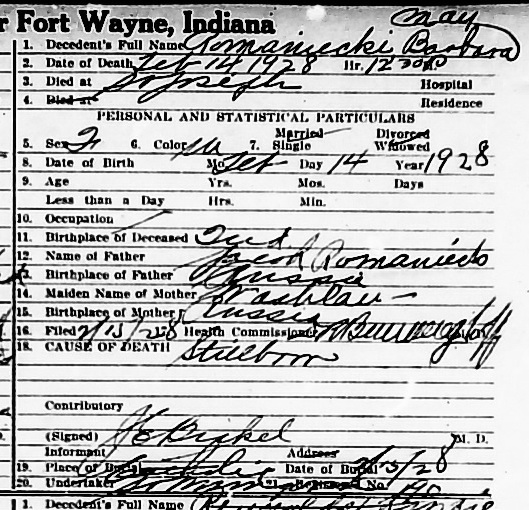 r Fort Wayne, Indiana
May
1. Decedent's Full Name Romaniecki Barbara
2. Date of Death Feb 14 1928 Hr. 12
3. Died at St Joseph Hospital
4. Died at Residence
PERSONAL AND STATISTICAL PARTICULARS
5. Sex F 6. Color W 7. Married Single Divorced Widowed
8. Date of Birth Mo. Feb Day 14 Year 1928
9. Age Yrs. Mos. Days
Less than a Day Hrs. Min.
10. Occupation
11. Birthplace of Deceased Ind
12. Name of Father Jacob Romaniecki
13. Birthplace of Father Russia
14. Maiden Name of Mother
15. Birthplace of Mother Russia
16. Filed 2/15/28 Health Commissioner
18. CAUSE OF DEATH Stillborn
Contributory
(Signed) Bickel M. D.
Informant Address
19. Place of Burial Catholic Date of Burial /28
20. Undertaker No
1. Decedent's Full Name